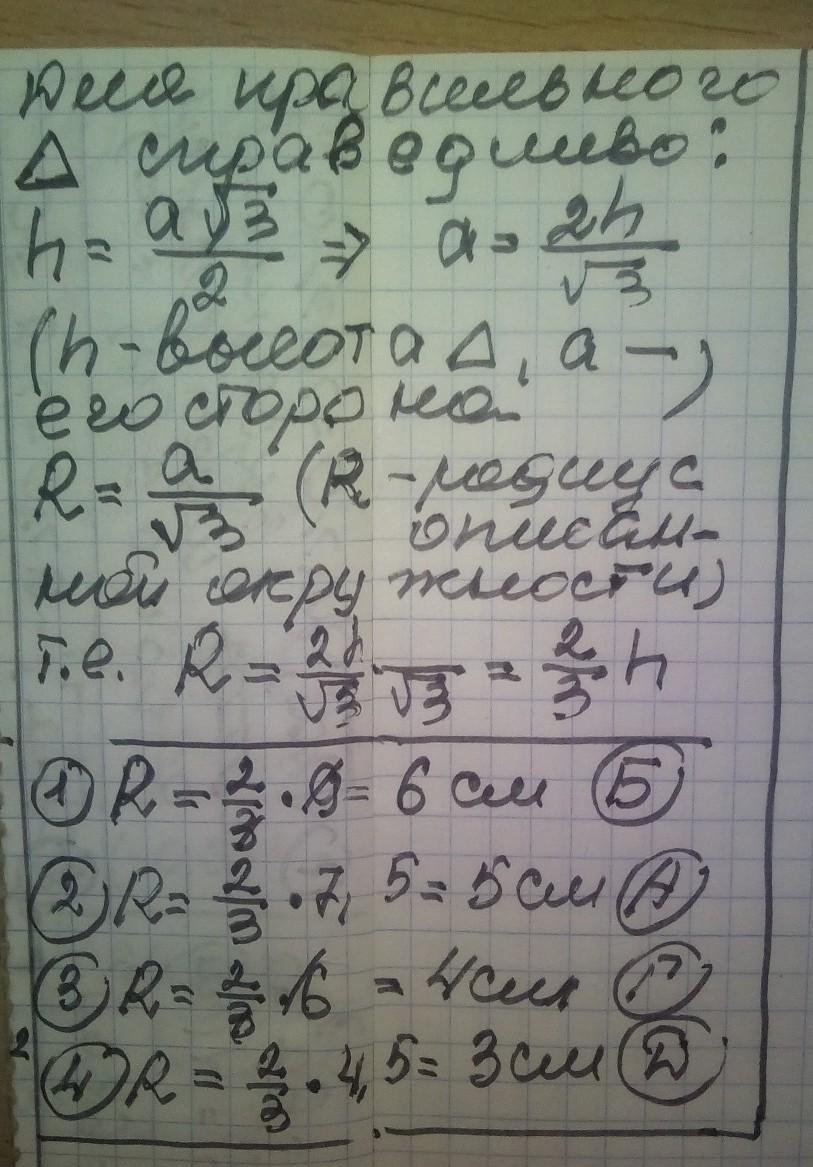 Для правильного
Δ справедливо:
h = a√3/2 ⇒ a = 2h/√3
(h - высота Δ, a -
его сторона)
R = a/√3 (R - радиус
описан-
ной окружности)
т.е. R = 2h/√3·√3 = 2/3 h
① R = 2/3 · 9 = 6 см Б
② R = 2/3 · 7,5 = 5 см А
③ R = 2/3 · 6 = 4 см Г
④ R = 2/3 · 4,5 = 3 см Д